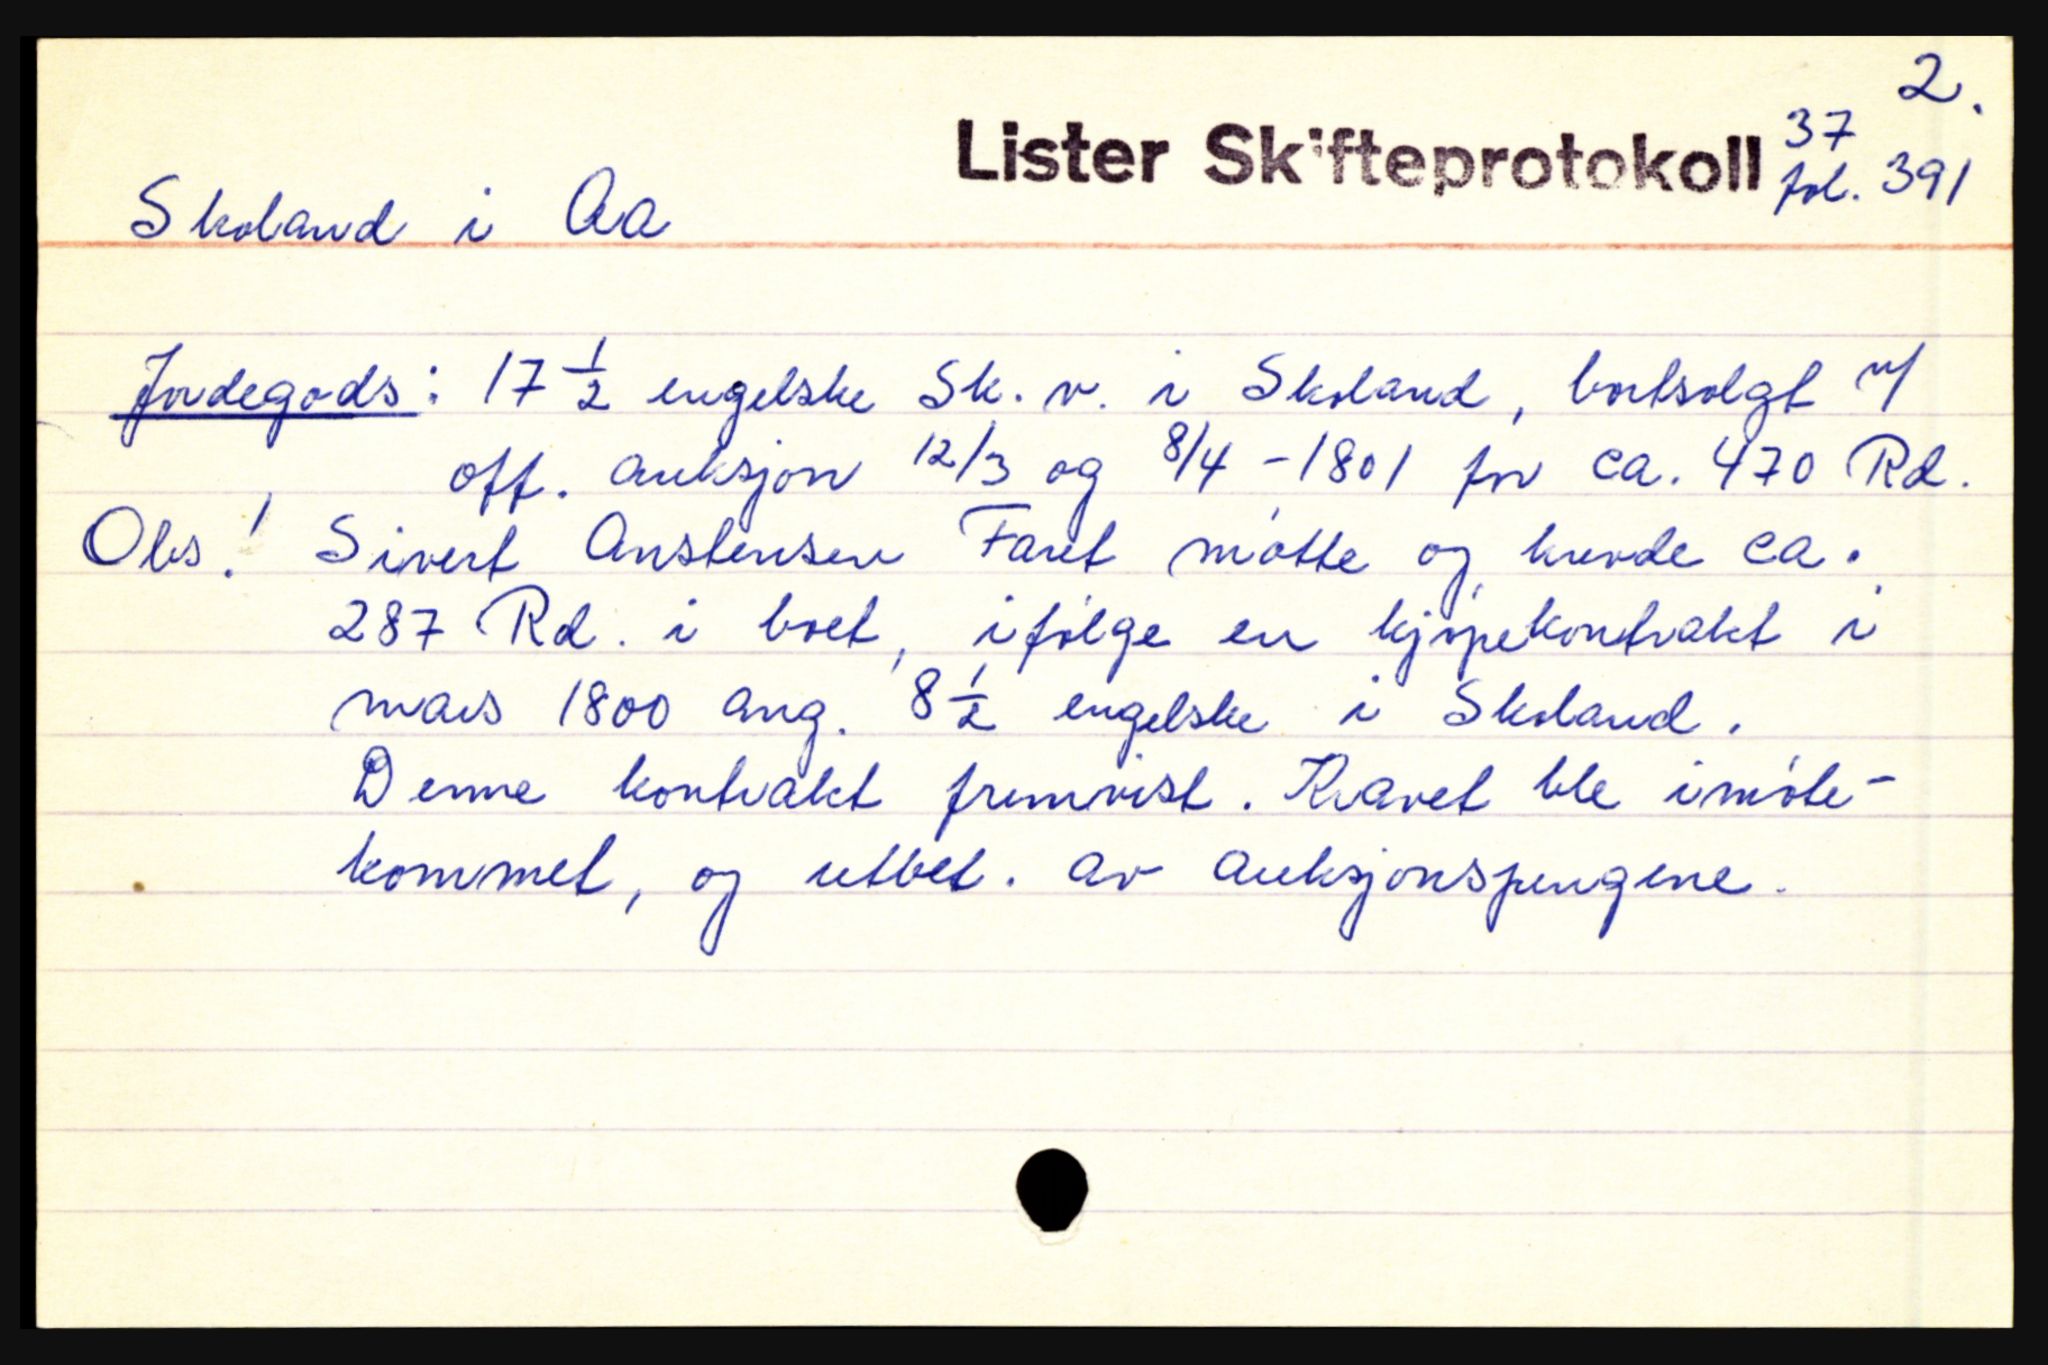 2.
Lister Skifteprotokoll 37
fol. 391
Skoland i Aa
Jordegods: 17 1/2 engelske Sk. v. i Skoland, bortsolgt v/
off. auksjon 12/3 og 8/4 - 1801 for ca. 470 Rd.
Obs! Sivert Anstensen Faret møtte og krevde ca.
287 Rd. i boet, ifølge en kjøpekontrakt i
mars 1800 ang. 8 1/2 engelske i Skoland.
Denne kontrakt fremvist. Kravet ble imøte-
kommet, og utbet. av auksjonspengene.